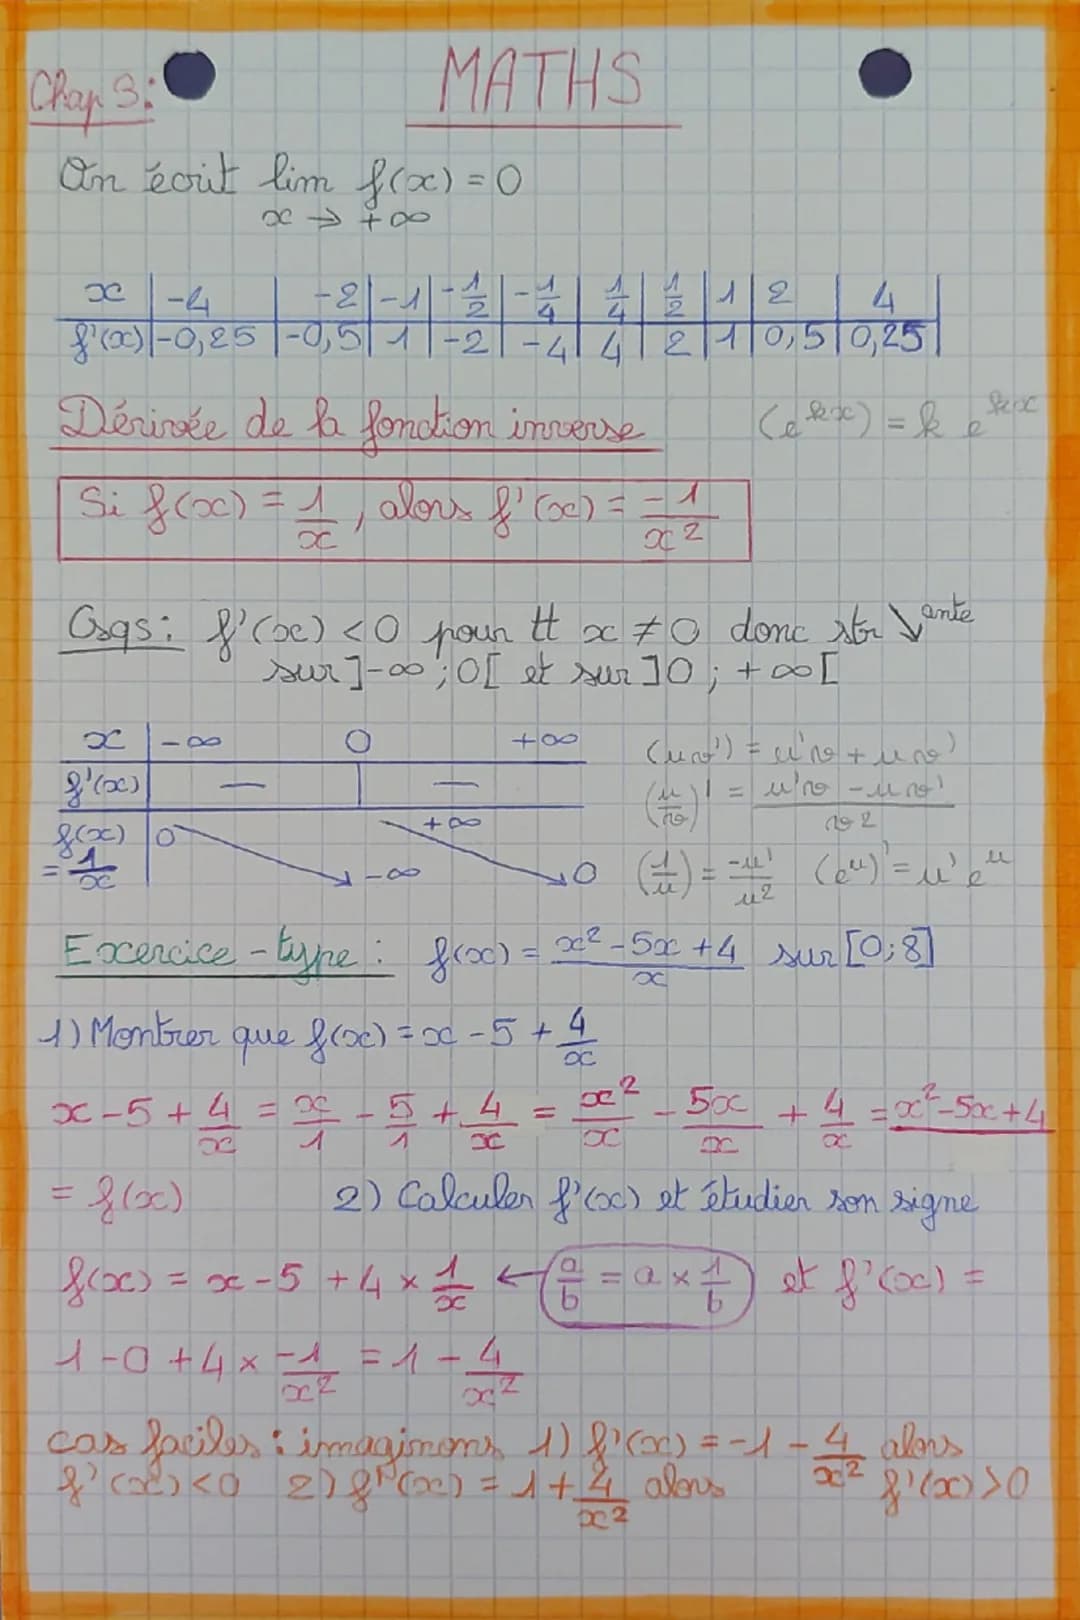 Chap 3:
MATHS
On écrit lim f(x) = 0
x → +∞
x | -4 | -2 | -1 | -1/2 | -1/4 | 1/4 | 1/2 | 1 | 2 | 4 |
f'(x) | -0,25 | -0,5 | 1 | -2 | -4 | 4 | 2 | 1 | 0,5 | 0,25 |
Dérivée de la fonction inverse (e^kx) = k e^kx
Si f(x) = 1/x, alors f'(x) = -1/x²
Csqs: f'(x) < 0 pour tt x ≠ 0 donc str ↘ante
sur ]-∞; 0[ et sur ]0; +∞[
x | -∞ 0 +∞
(uv') = u'v + uv'
f'(x) | - | -
(u/v)' = u'v - uv' / v2
f(x) = 1/x | 0 ↘ -∞ +∞ ↘ 0
(1/u) = -u'/u² (e^u)' = u' e^u
Excercice - type : f(x) = x² - 5x + 4 / x sur [0; 8]
1) Montrer que f(x) = x - 5 + 4/x
x - 5 + 4/x = x/1 - 5/1 + 4/x = x²/x - 5x/x + 4/x = x² - 5x + 4
= f(x) 2) Calculer f'(x) et étudier son signe
f(x) = x - 5 + 4 × 1/x ← a/b = a × 1/b et f'(x) =
1 - 0 + 4 × -1/x² = 1 - 4/x²
cas faciles : imaginons 1) f'(x) = -1 - 4/x² alors
f'(x) < 0 2) f'(x) = 1 + 4/x² alors f'(x) > 0